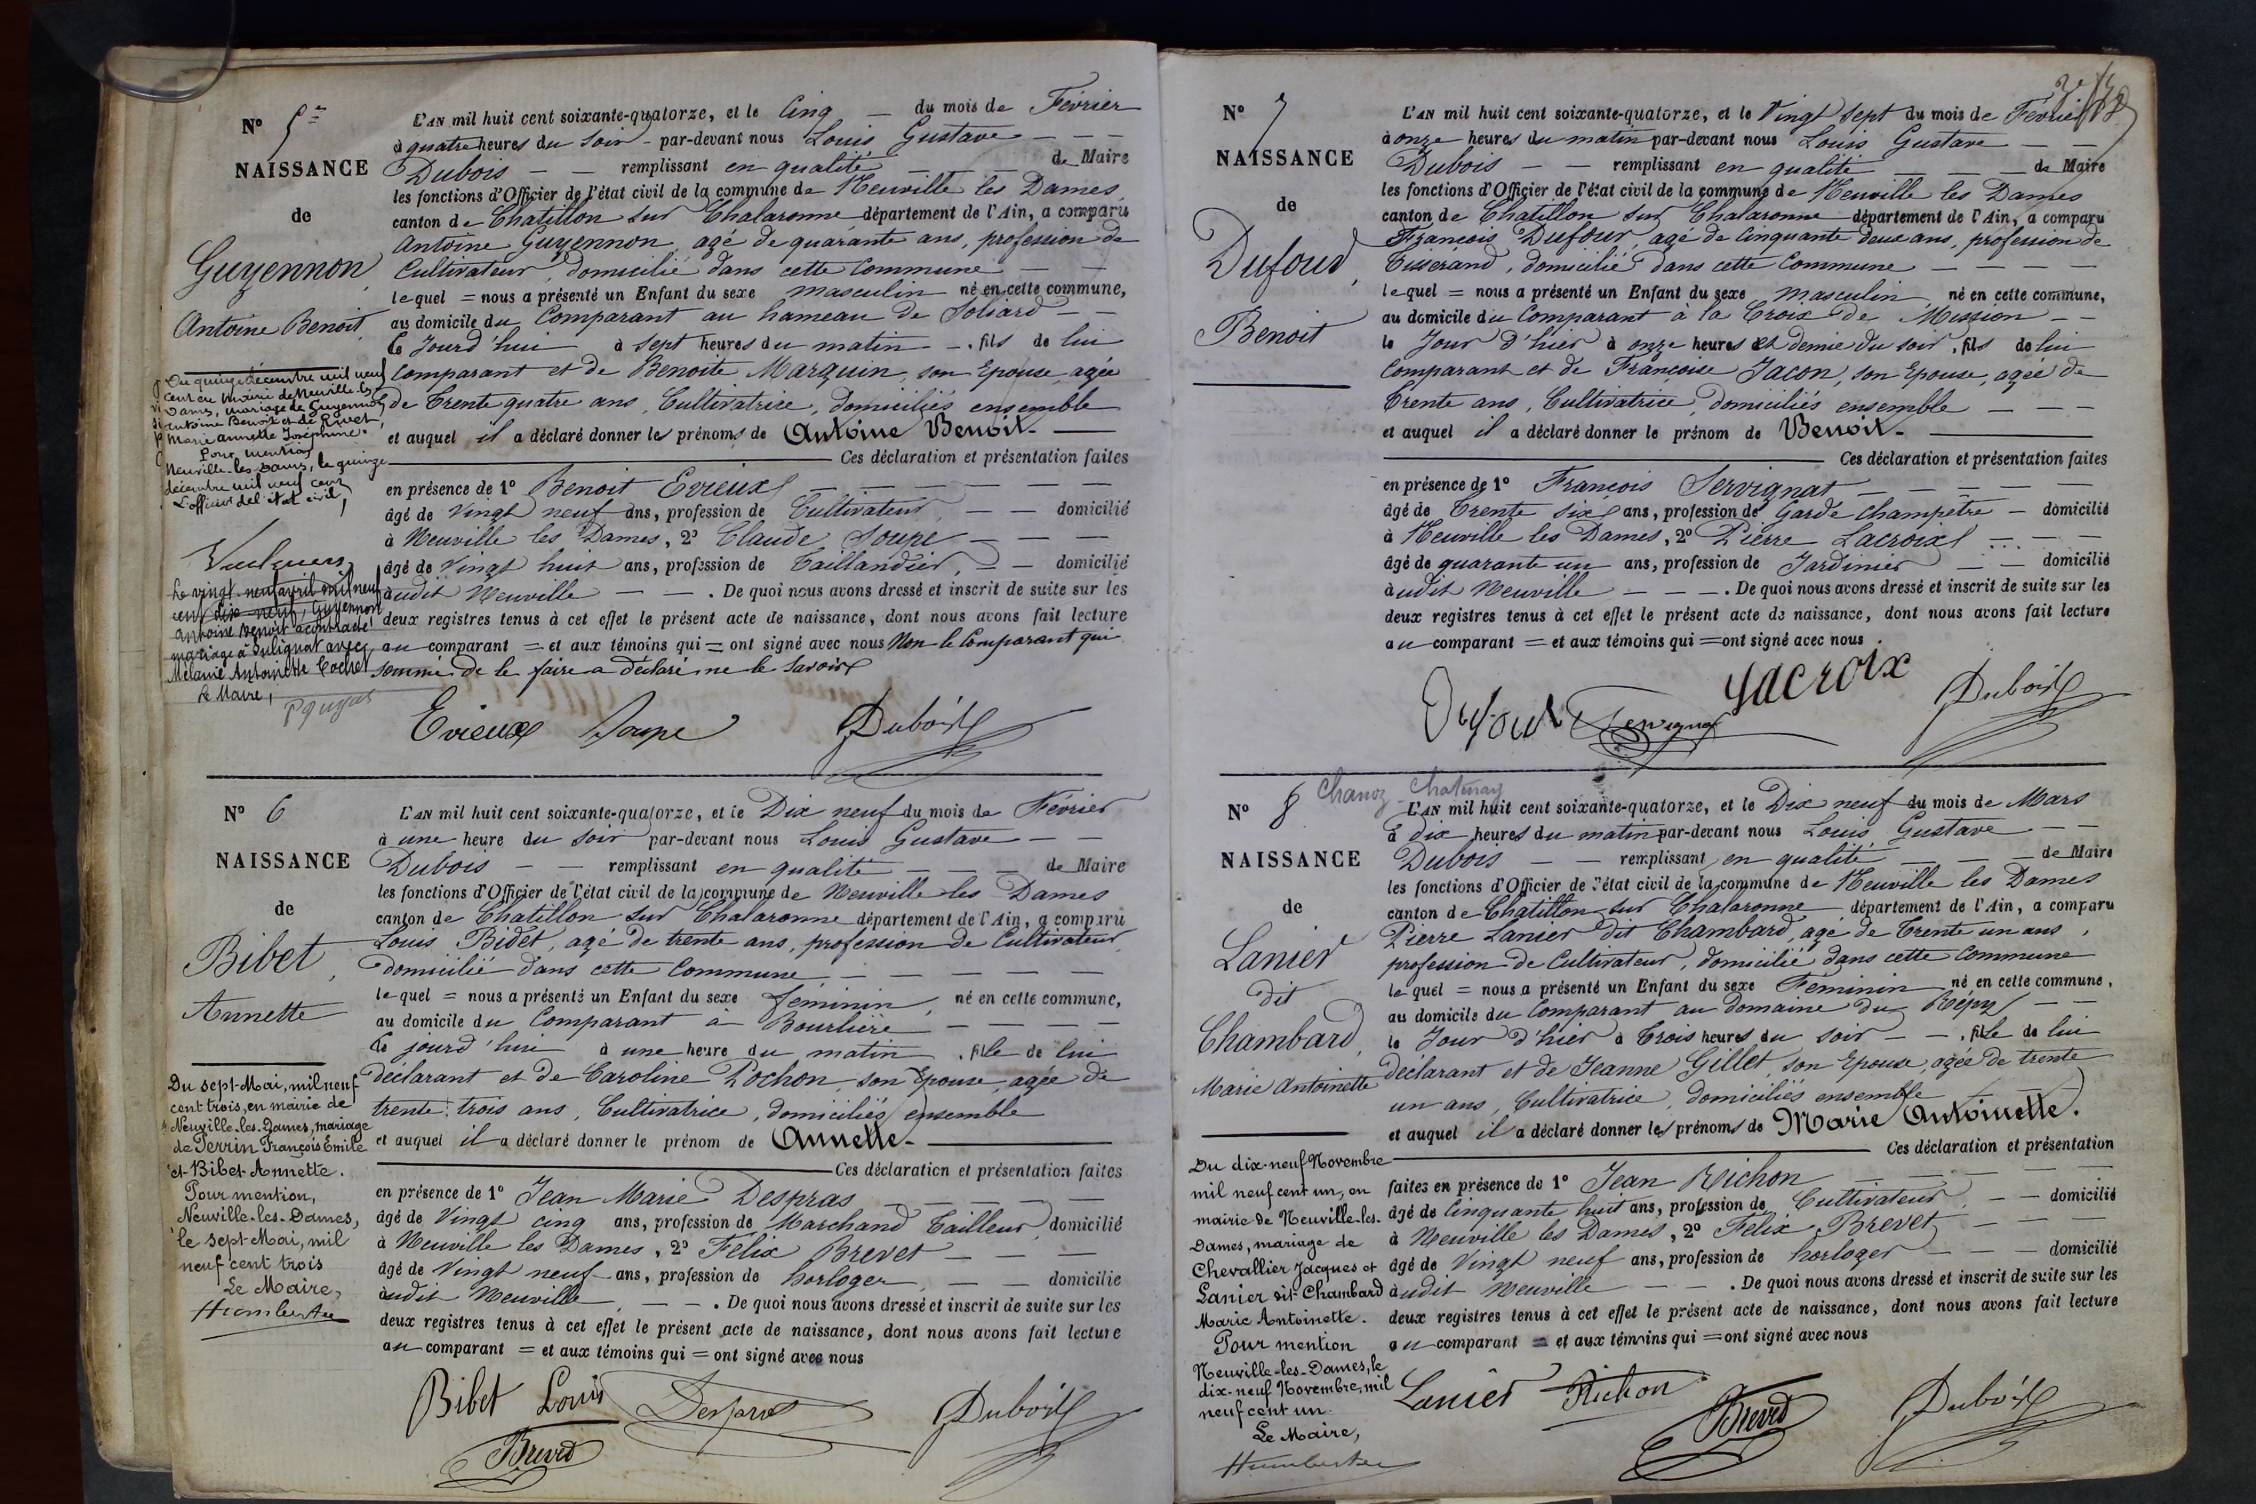 N° 5
NAISSANCE
de
Guyennon,
Antoine Benoit.
Du quinze décembre mil neuf
cent en mairie de Neuville-les-
Dames, mariage de Guyennon
Antoine Benoit et de
Marie Annette Joséphine.
Pour mention
Neuville-les-Dames, le quinze
décembre mil neuf cent
L'officier de l'état civil,
Le vingt-neuf avril mil neuf
cent dix-neuf, Guyennon
Antoine Benoit a contracté
mariage à Sulignat avec
Mélanie Antoinette Cochet
Le Maire,
L'AN mil huit cent soixante-quatorze, et le Cinq — du mois de Février
à quatre heures du soir - par-devant nous Louis Gustave — — —
Dubois — — remplissant en qualité — — — de Maire
les fonctions d'Officier de l'état civil de la commune de Neuville les Dames
canton de Chatillon sur Chalaronne département de l'Ain, a comparu
Antoine Guyennon, agé de quarante ans, profession de
Cultivateur, domicilié dans cette Commune — —
lequel = nous a présenté un Enfant du sexe masculin né en cette commune,
au domicile du Comparant au hameau de Soliard — —
Ce Jourd'hui à sept heures du matin — . fils de lui
Comparant et de Benoite Marguin, son Epouse, agée
de Trente quatre ans, Cultivatrice, domiciliés ensemble
et auquel il a déclaré donner les prénoms de Antoine Benoit. —
Ces déclaration et présentation faites
en présence de 1° Benoit Evieux — — — — —
âgé de Vingt neuf ans, profession de Cultivateur, — — domicilié
à Neuville les Dames, 2° Claude Soupe — — —
âgé de Vingt huit ans, profession de Taillandier, — — domicilié
audit Neuville — — . De quoi nous avons dressé et inscrit de suite sur les
deux registres tenus à cet effet le présent acte de naissance, dont nous avons fait lecture
au comparant = et aux témoins qui = ont signé avec nous Non le Comparant qui
sommé de le faire a déclaré ne le savoir
Evieux Soupe Dubois
N° 6
NAISSANCE
de
Bibet,
Annette
Du sept Mai, mil neuf
cent trois, en mairie de
Neuville-les-Dames, mariage
de Perrin François Emile
et Bibet Annette.
Pour mention,
Neuville-les-Dames,
le sept Mai, mil
neuf cent trois
Le Maire,
L'AN mil huit cent soixante-quatorze, et le Dix neuf du mois de Février
à une heure du soir par-devant nous Louis Gustave — —
Dubois — — remplissant en qualité — — — de Maire
les fonctions d'Officier de l'état civil de la commune de Neuville les Dames
canton de Chatillon sur Chalaronne département de l'Ain, a comparu
Louis Bidet, agé de trente ans, profession de Cultivateur,
domicilié dans cette Commune — — — — —
lequel = nous a présenté un Enfant du sexe Féminin, né en cette commune,
au domicile du Comparant à Bourlière — — — —
Ce jourd'hui à une heure du matin . fille de lui
déclarant et de Caroline Pochon, son Epouse, agée de
trente trois ans, Cultivatrice, domiciliés ensemble
et auquel il a déclaré donner le prénom de Annette. —
Ces déclaration et présentation faites
en présence de 1° Jean Marie Despras — — — —
âgé de Vingt cinq ans, profession de Marchand Tailleur, domicilié
à Neuville les Dames, 2° Felix Brevet — — —
âgé de Vingt neuf ans, profession de horloger, — — domicilié
audit Neuville, — — . De quoi nous avons dressé et inscrit de suite sur les
deux registres tenus à cet effet le présent acte de naissance, dont nous avons fait lecture
au comparant = et aux témoins qui = ont signé avec nous
Bibet Louis Despras Dubois
Brevet
N° 7
NAISSANCE
de
Dufour,
Benoit
L'AN mil huit cent soixante-quatorze, et le Vingt sept du mois de Février
à onze heures du matin par-devant nous Louis Gustave — —
Dubois — — remplissant en qualité — — — de Maire
les fonctions d'Officier de l'état civil de la commune de Neuville les Dames
canton de Chatillon sur Chalaronne département de l'Ain, a comparu
François Dufour, agé de Cinquante deux ans, profession de
Tisserand, domicilié dans cette Commune — — — —
lequel = nous a présenté un Enfant du sexe Masculin, né en cette commune,
au domicile du Comparant à la Croix de Mission — —
le Jour d'hier à onze heures et demie du soir, fils de lui
Comparant et de Françoise Jacon, son Epouse, agée de
Trente ans, Cultivatrice, domiciliés ensemble — — —
et auquel il a déclaré donner le prénom de Benoit. —
Ces déclaration et présentation faites
en présence de 1° François Servignat — — — — —
âgé de Trente six ans, profession de Garde Champêtre — domicilié
à Neuville les Dames, 2° Pierre Lacroix — — —
âgé de quarante un ans, profession de Jardinier — — domicilié
audit Neuville — — — . De quoi nous avons dressé et inscrit de suite sur les
deux registres tenus à cet effet le présent acte de naissance, dont nous avons fait lecture
au comparant = et aux témoins qui = ont signé avec nous.
Dufour Servignat Lacroix Dubois
Chanoz Chatenay
N° 8
NAISSANCE
de
Lanier
dit
Chambard,
Marie Antoinette
Du dix-neuf Novembre
mil neuf cent un, en
mairie de Neuville-les-
Dames, mariage de
Chevallier Jacques et
Lanier dit Chambard
Marie Antoinette.
Pour mention
Neuville-les-Dames, le
dix-neuf Novembre, mil
neuf cent un.
Le Maire,
L'AN mil huit cent soixante-quatorze, et le Dix neuf du mois de Mars
à dix heures du matin par-devant nous Louis Gustave — —
Dubois — — remplissant en qualité — — — de Maire
les fonctions d'Officier de l'état civil de la commune de Neuville les Dames
canton de Chatillon sur Chalaronne département de l'Ain, a comparu
Pierre Lanier dit Chambard, agé de Trente un ans,
profession de Cultivateur, domicilié dans cette Commune
lequel = nous a présenté un Enfant du sexe Féminin né en cette commune,
au domicile du Comparant au domaine du — —
le Jour d'hier à Trois heures du soir — — , fille de lui
déclarant et de Jeanne Gillet, son Epouse, agée de trente
un ans, Cultivatrice, domiciliés ensemble
et auquel il a déclaré donner les prénoms de Marie Antoinette.
Ces déclaration et présentation
faites en présence de 1° Jean Richon — — — — —
âgé de Cinquante huit ans, profession de Cultivateur, — — domicilié
à Neuville les Dames, 2° Felix Brevet — — —
âgé de Vingt neuf ans, profession de horloger — — — domicilié
audit Neuville — — . De quoi nous avons dressé et inscrit de suite sur les
deux registres tenus à cet effet le présent acte de naissance, dont nous avons fait lecture
au comparant = et aux témoins qui = ont signé avec nous
Lanier Richon Brevet Dubois